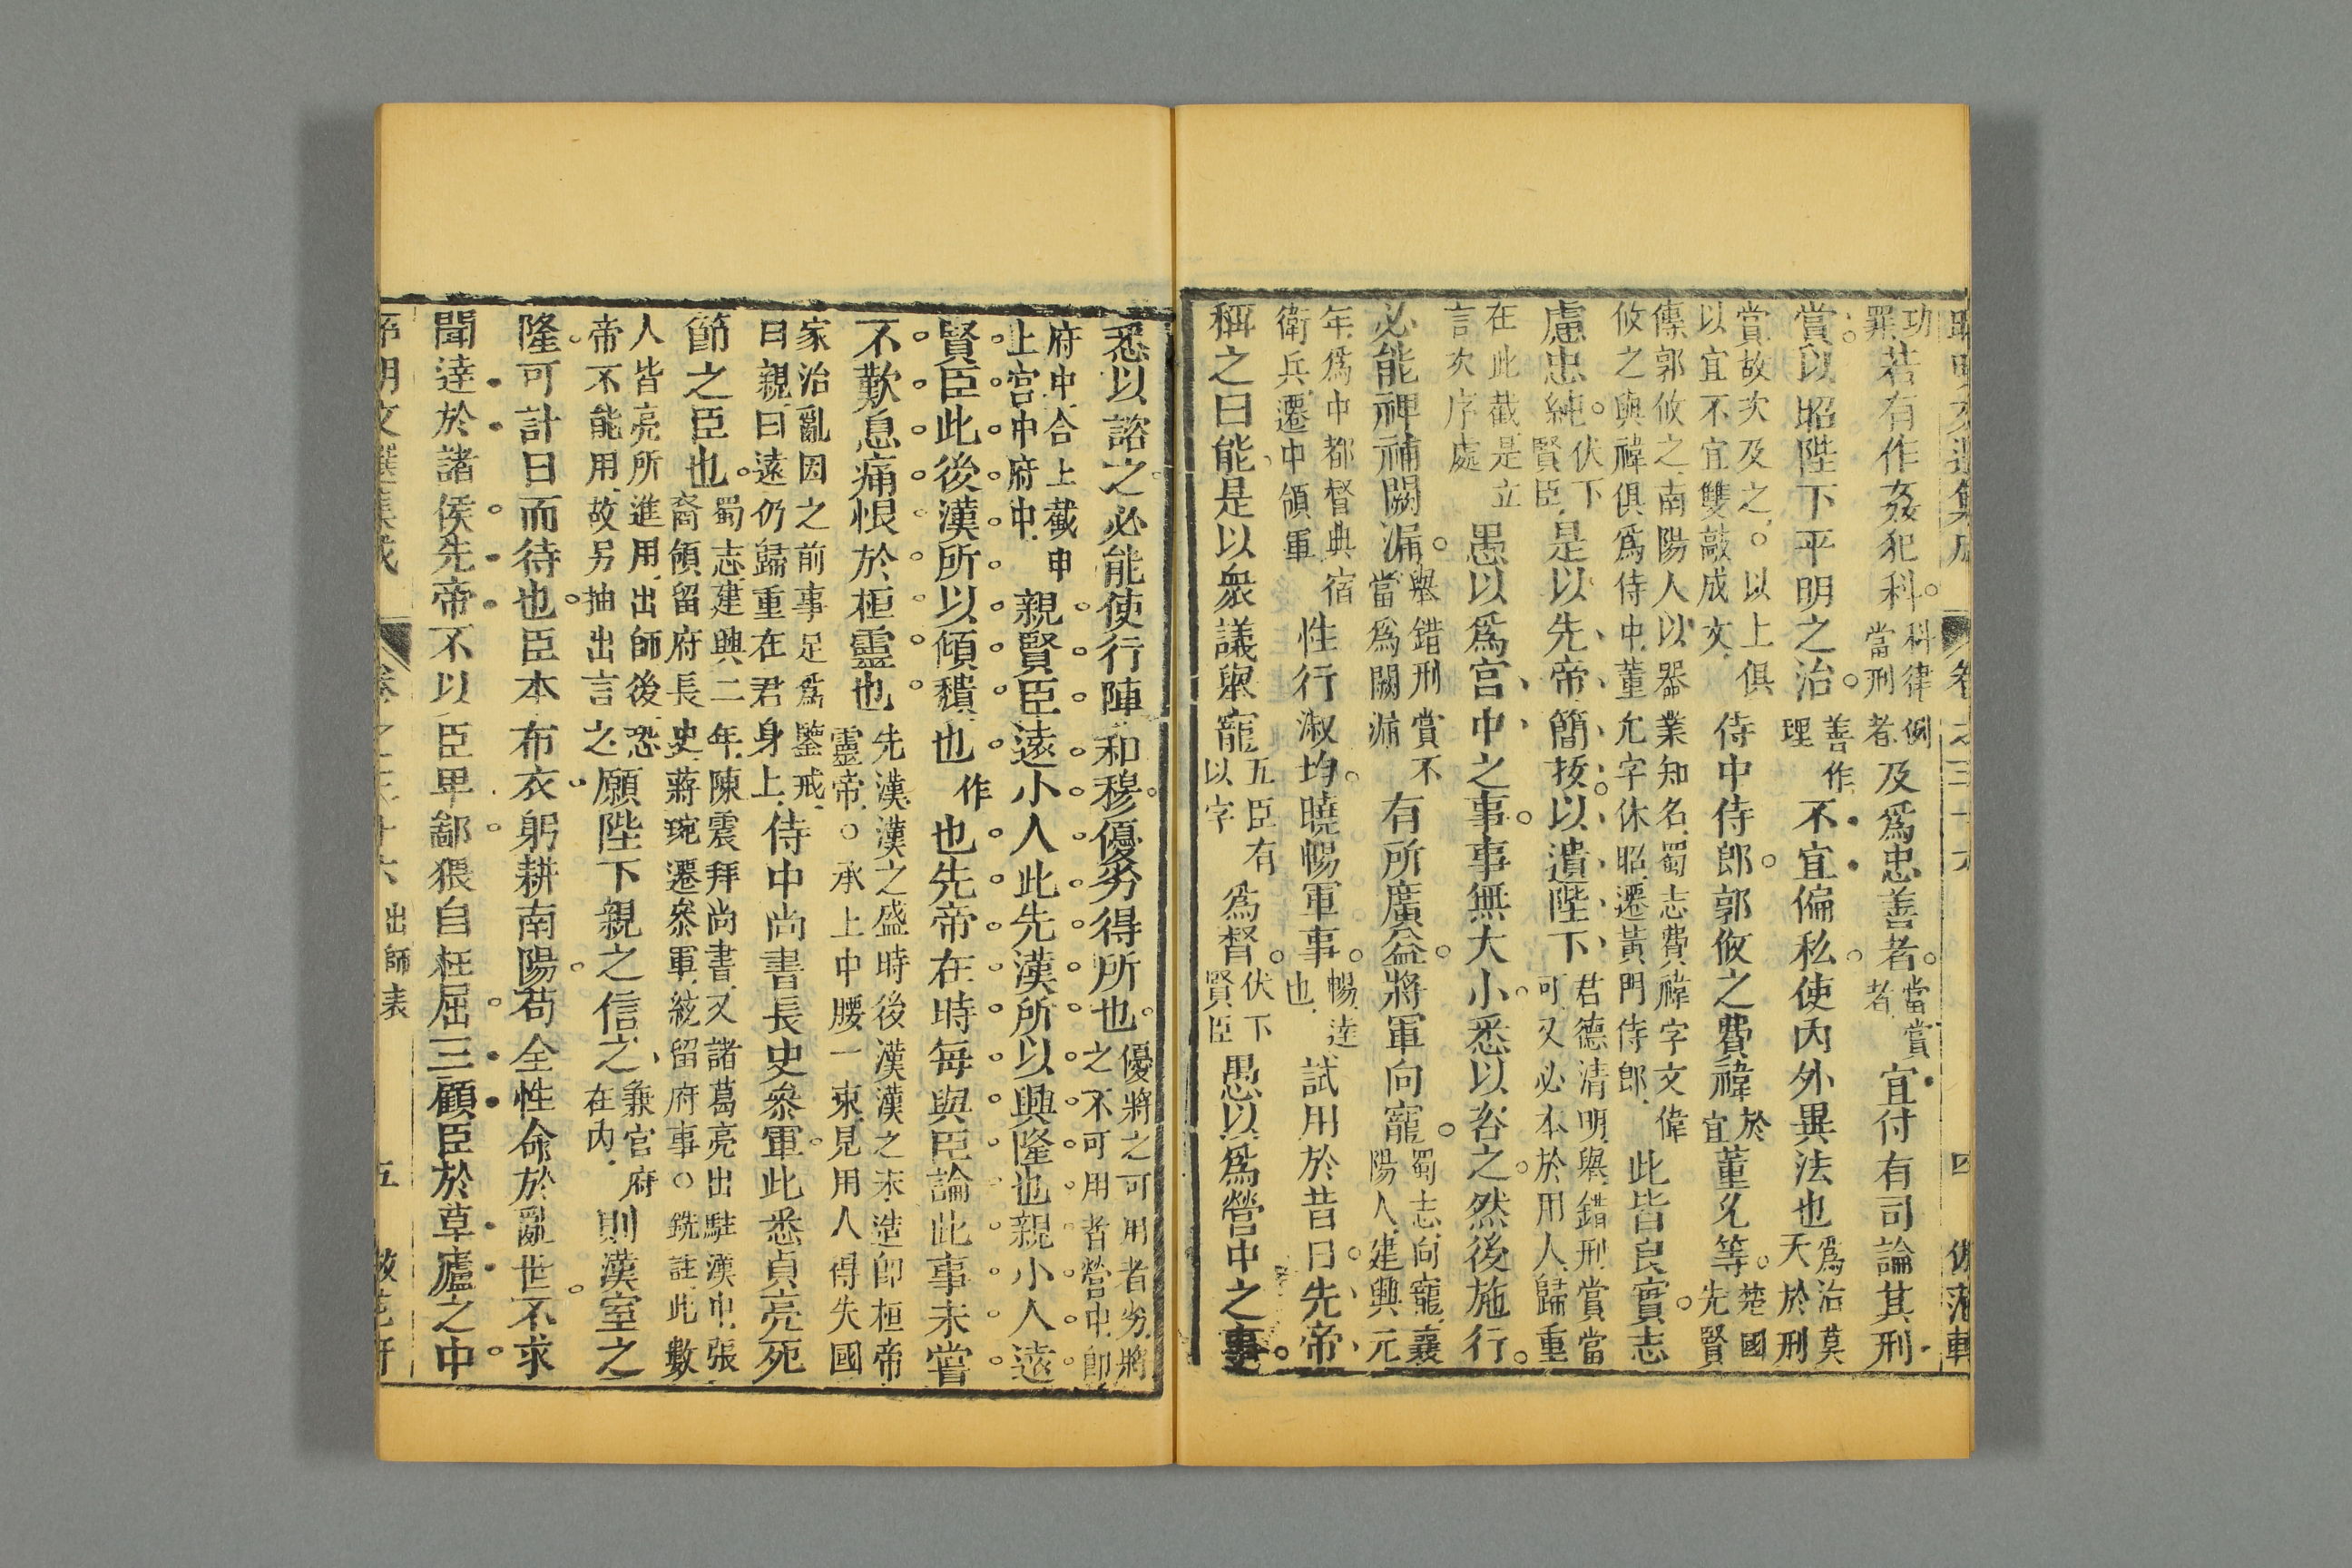 昭明文選集成　卷之三十六　四　倣范軒
功罪若有作姦犯科。科律例當刑者及爲忠善者。當賞者宜付有司論其刑
賞。以昭陛下平明之治。善作理不宜偏私。使內外異法也爲治莫天於刑
賞故次及之。○以上俱以宜不宜雙敲成文侍中侍郎。郭攸之費禕於宜董允等。楚國先賢
傳郭攸之南陽人以器業知名蜀志費禕字文偉攸之與禕俱爲侍中董允字休昭遷黃門侍郎此皆良實。志
慮忠純。伏下賢臣是以先帝簡拔。以遺陛下君德清明與錯刑賞當可又必本於用人歸重
在此截是立言次序處愚以爲宮中之事。事無大小。悉以咨之。然後施行。
必能裨補闕漏。舉錯刑賞不當爲闕漏有所廣益。將軍向寵。蜀志向寵襄陽人建興元
年爲中都督典宿衛兵遷中領軍性行淑均。曉暢軍事。暢達也試用於昔日。先帝
稱之曰能是以衆議舉寵五臣有以字爲督。伏下賢臣愚以爲營中之事。
悉以諮之。必能使行陣和穆。優劣得所也。優將之可用者劣將之不可用者營中卽
府中合上截申上宮中府中親賢臣遠小人此先漢所以興隆也親小人遠
賢臣此後漢所以傾穨也作也先帝在時每與臣論此事未嘗
不歎息痛恨於桓靈也先漢漢之盛時後漢漢之末造卽桓帝靈帝○承上中腰一束見用人得失國
家治亂因之前事足爲鑒戒曰親曰遠仍歸重在君身上侍中尚書長史參軍。此悉貞亮死
節之臣也。蜀志建興二年陳震拜尚書又諸葛亮出駐漢中張裔領留府長史蔣琬遷參軍統留府事○銑註此數
人皆亮所進用出師後恐帝不能用故另抽出言之願陛下親之信之兼官府在內則漢室之
隆。可計日而待也。臣本布衣躬耕南陽。苟全性命於亂世。不求
聞達於諸侯先帝不以臣卑鄙猥自枉屈三顧臣於草廬之中
昭明文選集成　卷之三十六　出師表　五　倣范軒